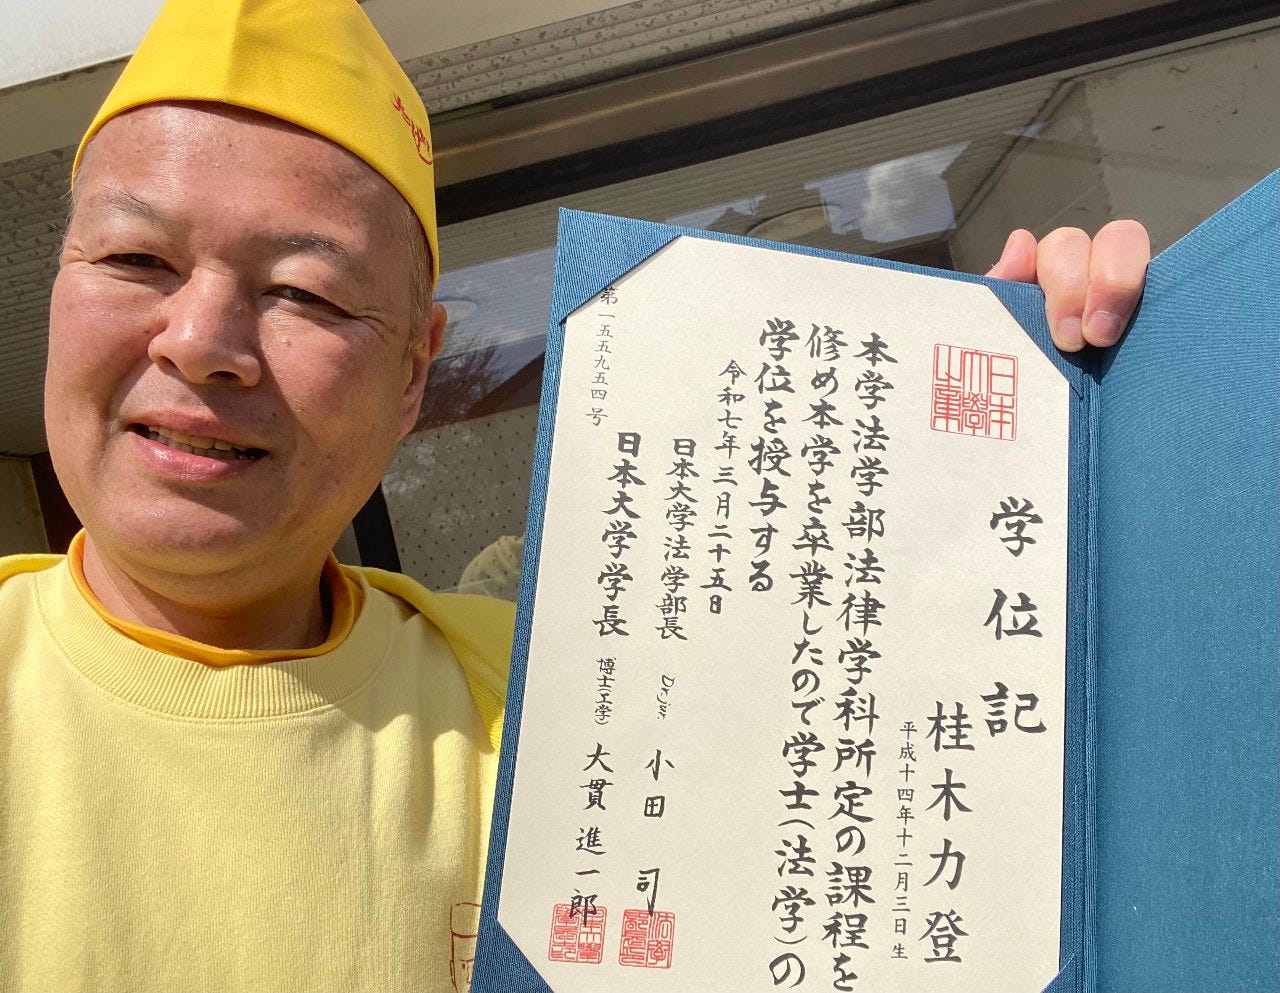 学位記
桂木力登
平成十四年十二月三日生
本学法学部法律学科所定の課程を
修め本学を卒業したので学士（法学）の
学位を授与する
令和七年三月二十五日
日本大学法学部長 Dr.jur. 小田 司
日本大学学長 博士（工学） 大貫 進一郎
第一五五九五四号